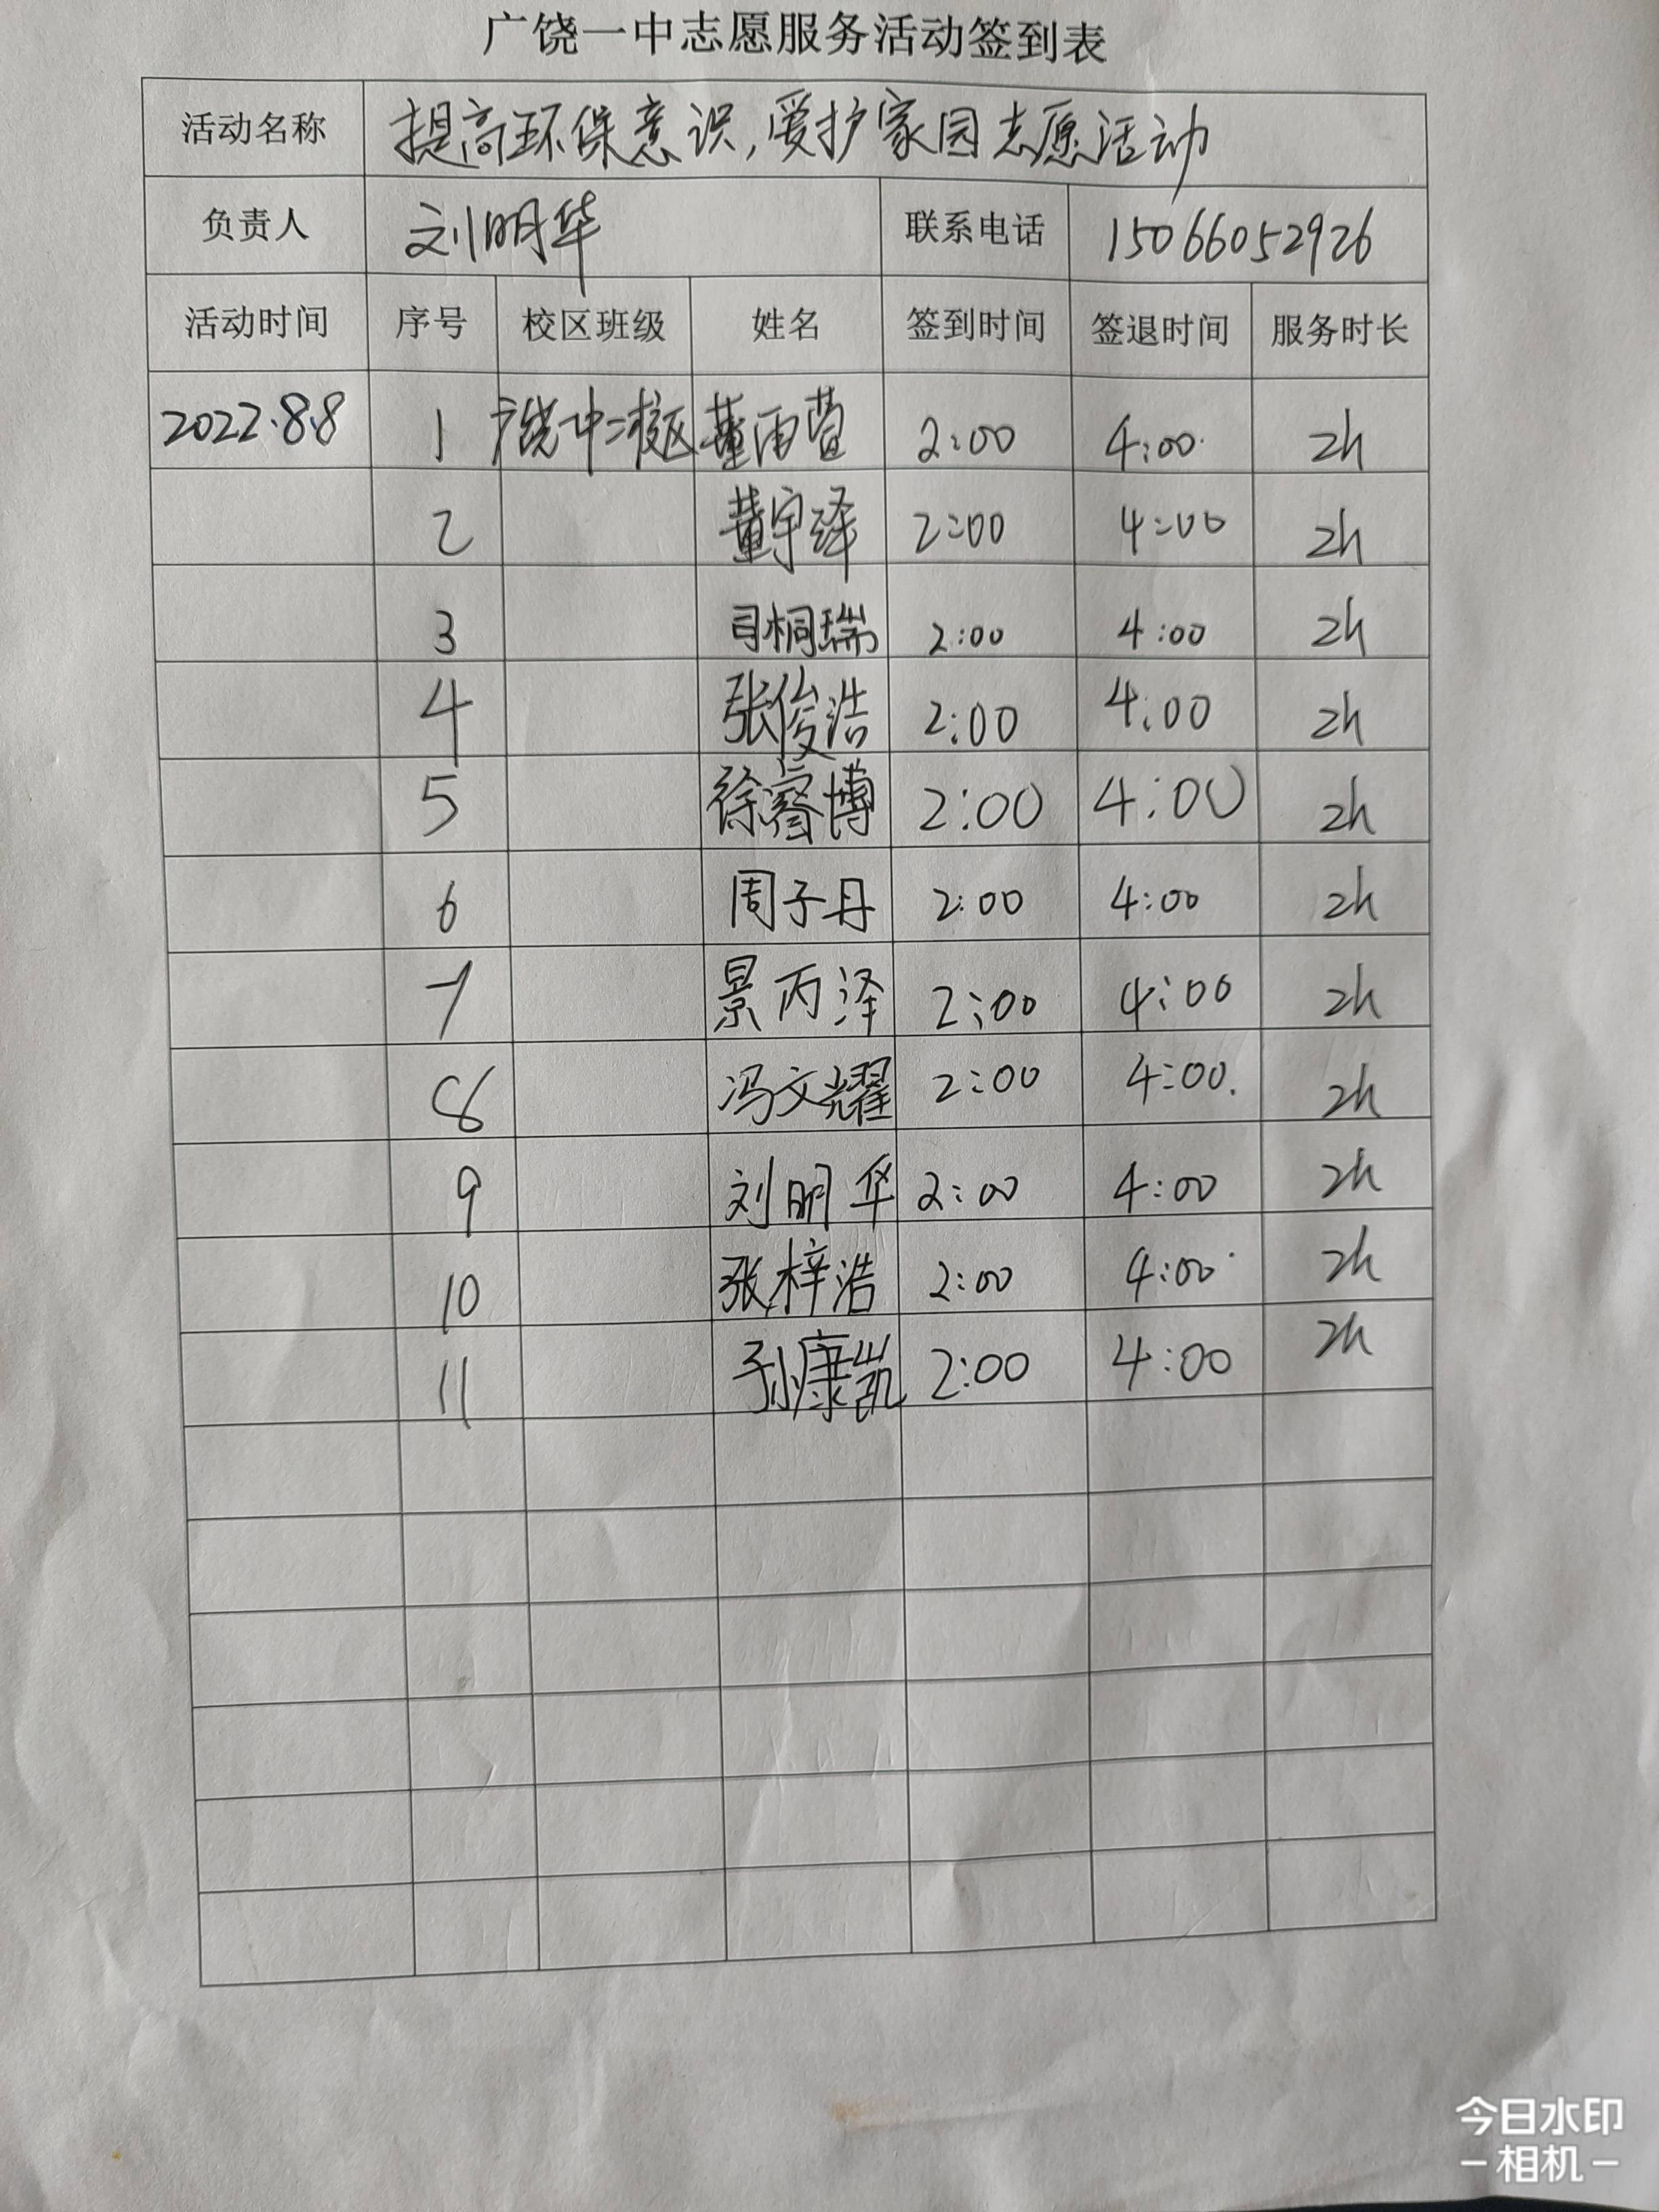 广饶一中志愿服务活动签到表
活动名称 提高环保意识,爱护家园志愿活动
负责人 刘明华 联系电话 15066052926
活动时间 序号 校区班级 姓名 签到时间 签退时间 服务时长
2022.8.8 1 广饶一中二校区 董雨萱 2:00 4:00 2h
2 董宇泽 2:00 4:00 2h
3 司桐瑞 2:00 4:00 2h
4 张俊浩 2:00 4:00 2h
5 徐睿博 2:00 4:00 2h
6 周子丹 2:00 4:00 2h
7 景丙泽 2:00 4:00 2h
8 冯文耀 2:00 4:00. 2h
9 刘明华 2:00 4:00 2h
10 张梓浩 2:00 4:00 2h
11 孙康凯 2:00 4:00 2h
今日水印
-相机-